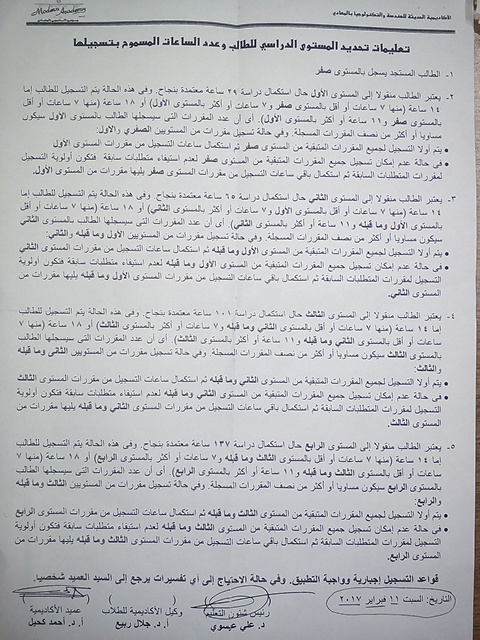 Modern Academy
الأكاديمية الحديثة للهندسة والتكنولوجيا بالمعادي
تعليمات تحديد المستوى الدراسي للطالب وعدد الساعات المسموح بتسجيلها
١- الطالب المستجد يسجل بالمستوى صفر
٢- يعتبر الطالب منقولا إلى المستوى الأول حال استكمال دراسة ٢٩ ساعة معتمدة بنجاح. وفى هذه الحالة يتم التسجيل للطالب إما
١٤ ساعة (منها ٧ ساعات أو أقل بالمستوى صفر و٧ ساعات أو أكثر بالمستوى الأول) أو ١٨ ساعة (منها ٧ ساعات أو أقل
بالمستوى صفر و١١ ساعة أو أكثر بالمستوى الأول). أى أن عدد المقررات التى سيسجلها الطالب بالمستوى الأول سيكون
مساويا أو أكثر من نصف المقررات المسجلة. وفى حالة تسجيل مقررات من المستويين الصفري والأول:
• يتم أولا التسجيل لجميع المقررات المتبقية من المستوى صفر ثم استكمال ساعات التسجيل من مقررات المستوى الأول
• فى حالة عدم إمكان تسجيل جميع المقررات المتبقية من المستوى صفر لعدم استيفاء متطلبات سابقة فتكون أولوية التسجيل
لمقررات المتطلبات السابقة ثم استكمال باقي ساعات التسجيل من مقررات المستوى صفر يليها مقررات من المستوى الأول.
٣- يعتبر الطالب منقولا إلى المستوى الثاني حال استكمال دراسة ٦٥ ساعة معتمدة بنجاح. وفى هذه الحالة يتم التسجيل للطالب إما
١٤ ساعة (منها ٧ ساعات أو أقل بالمستوى الأول وما قبله و٧ ساعات أو أكثر بالمستوى الثاني) أو ١٨ ساعة (منها ٧ ساعات أو أقل
بالمستوى الأول وما قبله و١١ ساعة أو أكثر بالمستوى الثاني). أى أن عدد المقررات التى سيسجلها الطالب بالمستوى الثاني
سيكون مساويا أو أكثر من نصف المقررات المسجلة. وفى حالة تسجيل مقررات من المستويين الأول وما قبله والثاني:
• يتم أولا التسجيل لجميع المقررات المتبقية من المستوى الأول وما قبله ثم استكمال ساعات التسجيل من مقررات المستوى الثاني
• فى حالة عدم إمكان تسجيل جميع المقررات المتبقية من المستوى الأول وما قبله لعدم استيفاء متطلبات سابقة فتكون أولوية
التسجيل لمقررات المتطلبات السابقة ثم استكمال باقي ساعات التسجيل من مقررات المستوى الأول وما قبله يليها مقررات من
المستوى الثاني.
٤- يعتبر الطالب منقولا إلى المستوى الثالث حال استكمال دراسة ١٠١ ساعة معتمدة بنجاح. وفى هذه الحالة يتم التسجيل للطالب
إما ١٤ ساعة (منها ٧ ساعات أو أقل بالمستوى الثاني وما قبله و٧ ساعات أو أكثر بالمستوى الثالث) أو ١٨ ساعة (منها ٧
ساعات أو أقل بالمستوى الثاني وما قبله و١١ ساعة أو أكثر بالمستوى الثالث). أى أن عدد المقررات التى سيسجلها الطالب
بالمستوى الثالث سيكون مساويا أو أكثر من نصف المقررات المسجلة. وفى حالة تسجيل مقررات من المستويين الثاني وما قبله
والثالث:
• يتم أولا التسجيل لجميع المقررات المتبقية من المستوى الثاني وما قبله ثم استكمال ساعات التسجيل من مقررات المستوى الثالث
• فى حالة عدم إمكان تسجيل جميع المقررات المتبقية من المستوى الثاني وما قبله لعدم استيفاء متطلبات سابقة فتكون أولوية
التسجيل لمقررات المتطلبات السابقة ثم استكمال باقي ساعات التسجيل من مقررات المستوى الثاني وما قبله يليها مقررات من
المستوى الثالث.
٥- يعتبر الطالب منقولا إلى المستوى الرابع حال استكمال دراسة ١٣٧ ساعة معتمدة بنجاح. وفى هذه الحالة يتم التسجيل للطالب
إما ١٤ ساعة (منها ٧ ساعات أو أقل بالمستوى الثالث وما قبله و٧ ساعات أو أكثر بالمستوى الرابع) أو ١٨ ساعة (منها ٧
ساعات أو أقل بالمستوى الثالث وما قبله و١١ ساعة أو أكثر بالمستوى الرابع). أى أن عدد المقررات التى سيسجلها الطالب
بالمستوى الرابع سيكون مساويا أو أكثر من نصف المقررات المسجلة. وفى حالة تسجيل مقررات من المستويين الثالث وما قبله
والرابع:
• يتم أولا التسجيل لجميع المقررات المتبقية من المستوى الثالث وما قبله ثم استكمال ساعات التسجيل من مقررات المستوى الرابع
• فى حالة عدم إمكان تسجيل جميع المقررات المتبقية من المستوى الثالث وما قبله لعدم استيفاء متطلبات سابقة فتكون أولوية
التسجيل لمقررات المتطلبات السابقة ثم استكمال باقي ساعات التسجيل من مقررات المستوى الثالث وما قبله يليها مقررات من
المستوى الرابع.
قواعد التسجيل إجبارية وواجبة التطبيق. وفي حالة الاحتياج إلى أي تفسيرات يرجع إلى السيد العميد شخصيا.
التاريخ: السبت ١١ فبراير ٢٠١٧
رئيس شئون التعليم
د. علي عيسوي
وكيل الأكاديمية للطلاب
أ. د. جلال ربيع
عميد الأكاديمية
أ. د. أحمد كحيل